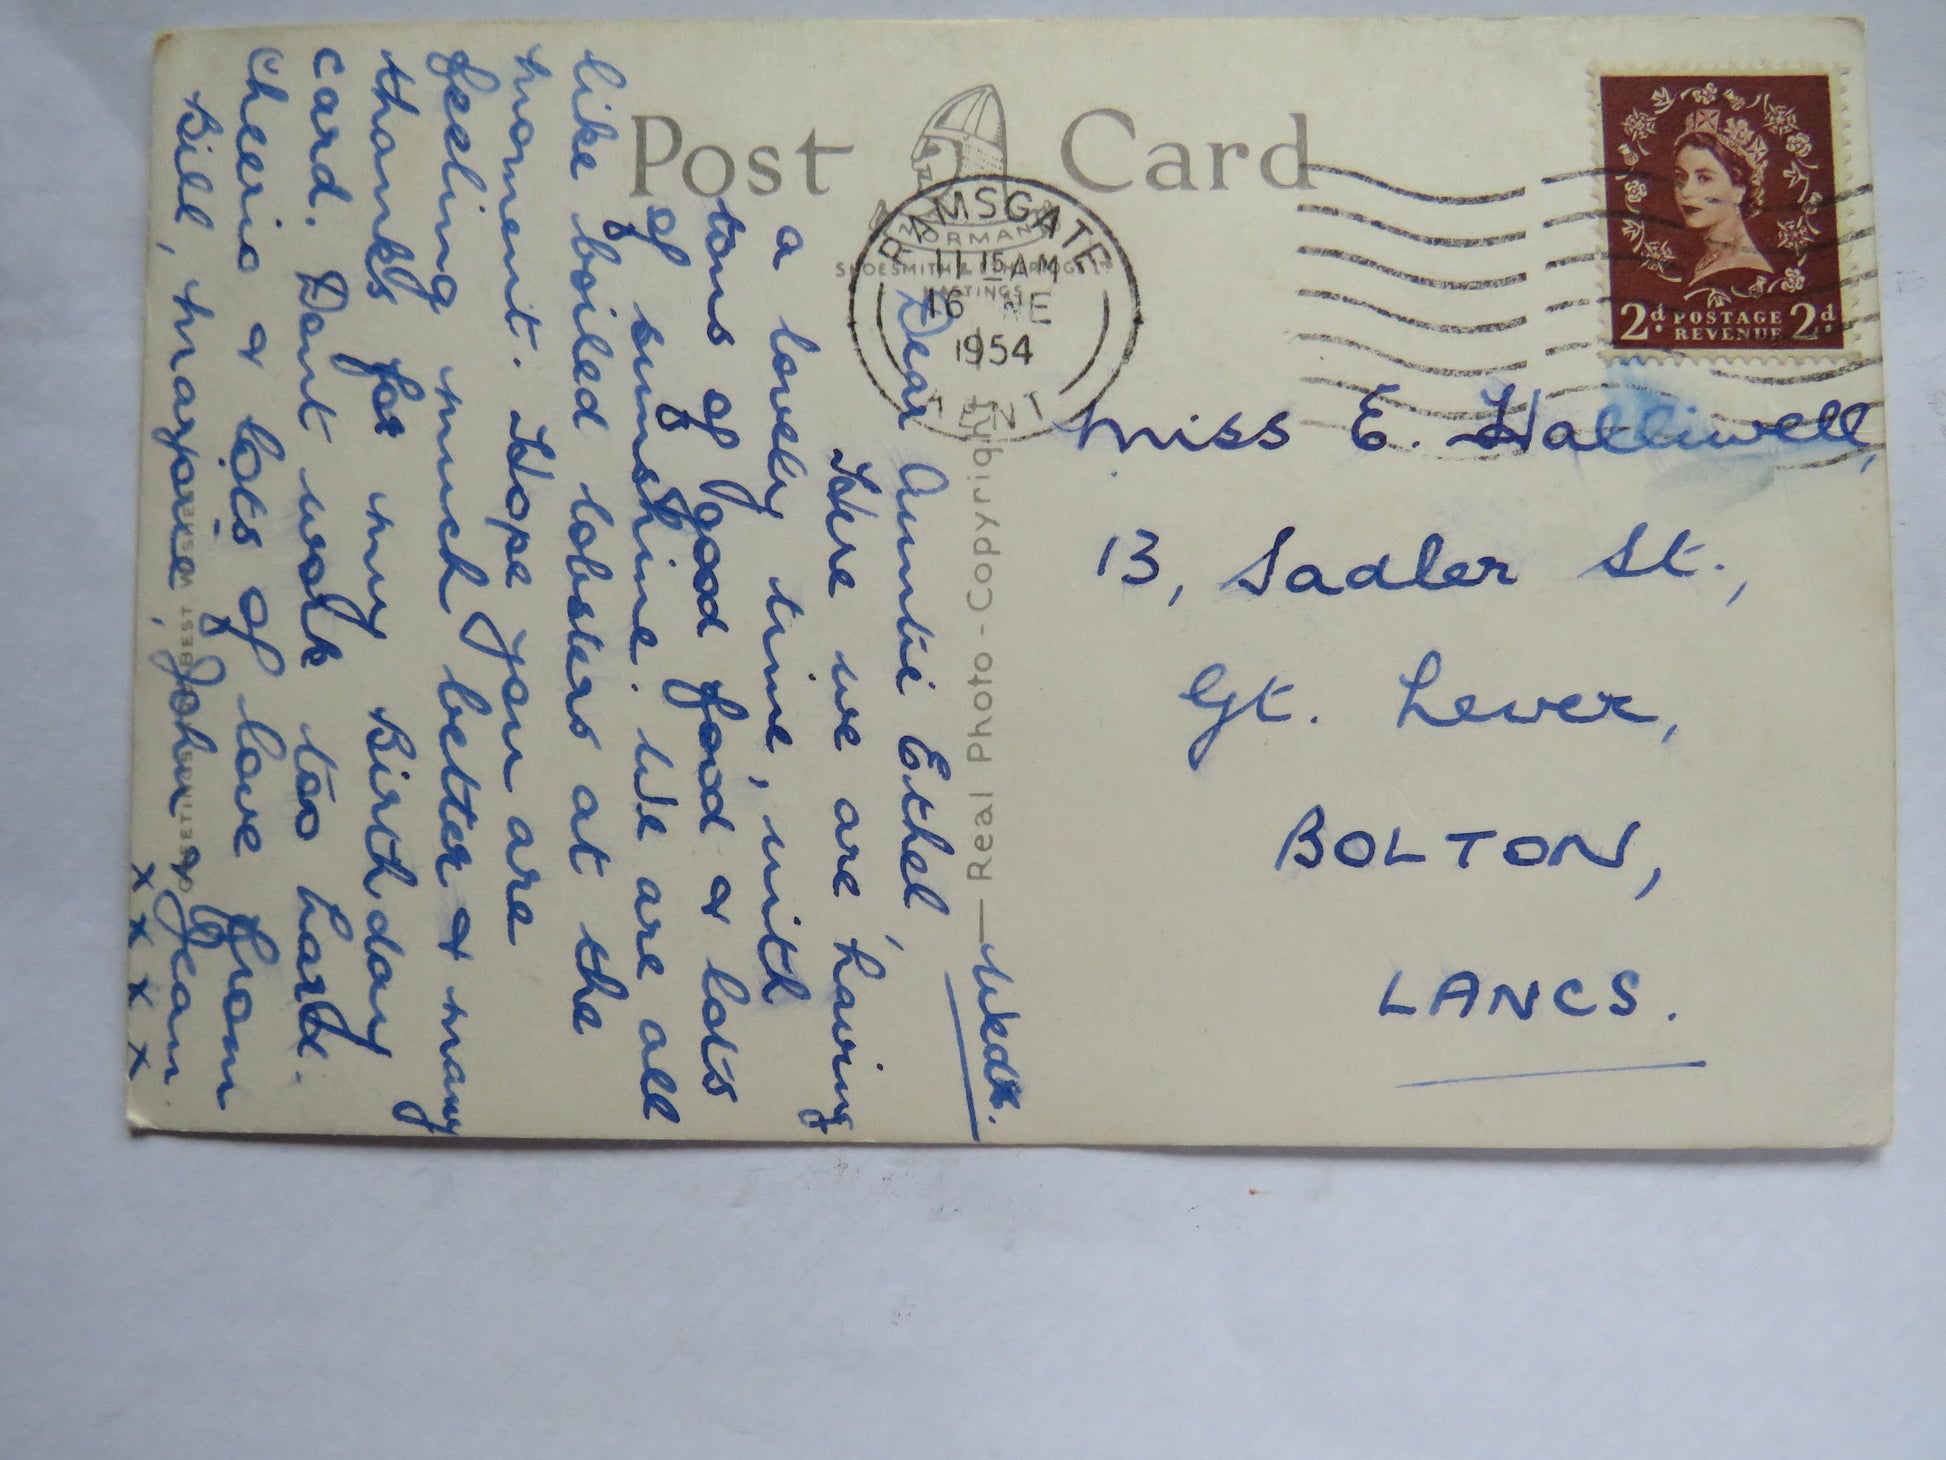 Post Card
NORMAN
SHOESMITH & ETHERIDGE LTD
HASTINGS
RAMSGATE
11 15 AM
16 NE
1954
KENT
2d POSTAGE 2d
REVENUE
Miss E. Halliwell,
13, Sadler St.,
Gt. Lever,
BOLTON,
LANCS.
Real Photo - Copyright
Weds.
Dear Auntie Ethel,
Here we are having
a lovely time, with
tons of good food & lots
of sunshine. We are all
like boiled lobsters at the
moment. Hope you are
feeling much better & many
thanks for my Birthday
card. Dont work too hard.
Cheerio & lots of love from
Bill, Marjorie, John & Jean.
x x x x
BEST WISHES
GREETINGS